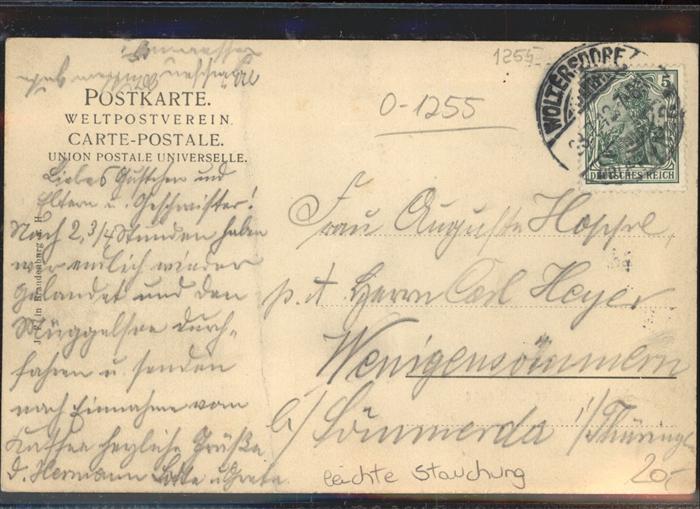 1255
0-1255
WOLTERSDORF
5
DEUTSCHES REICH
POSTKARTE.
WELTPOSTVEREIN.
CARTE-POSTALE.
UNION POSTALE UNIVERSELLE.
Liebes Gustchen und
Eltern u. Geschwister!
Nach 2, 3/4 Stunden haben
wir endlich wieder
gelandet und den
Müggelsee durch-
fahren u. senden
nach Einnahme vom
Kaffee herzliche Grüße
Hermann Lotte u. Grete
Frau Auguste Hoppe,
p. A. Herrn Carl Heyer
Wenigensömmern
b/ Sömmerda i/Thüringen
leichte Stauchung
20,-
in Brandenburg a. H.